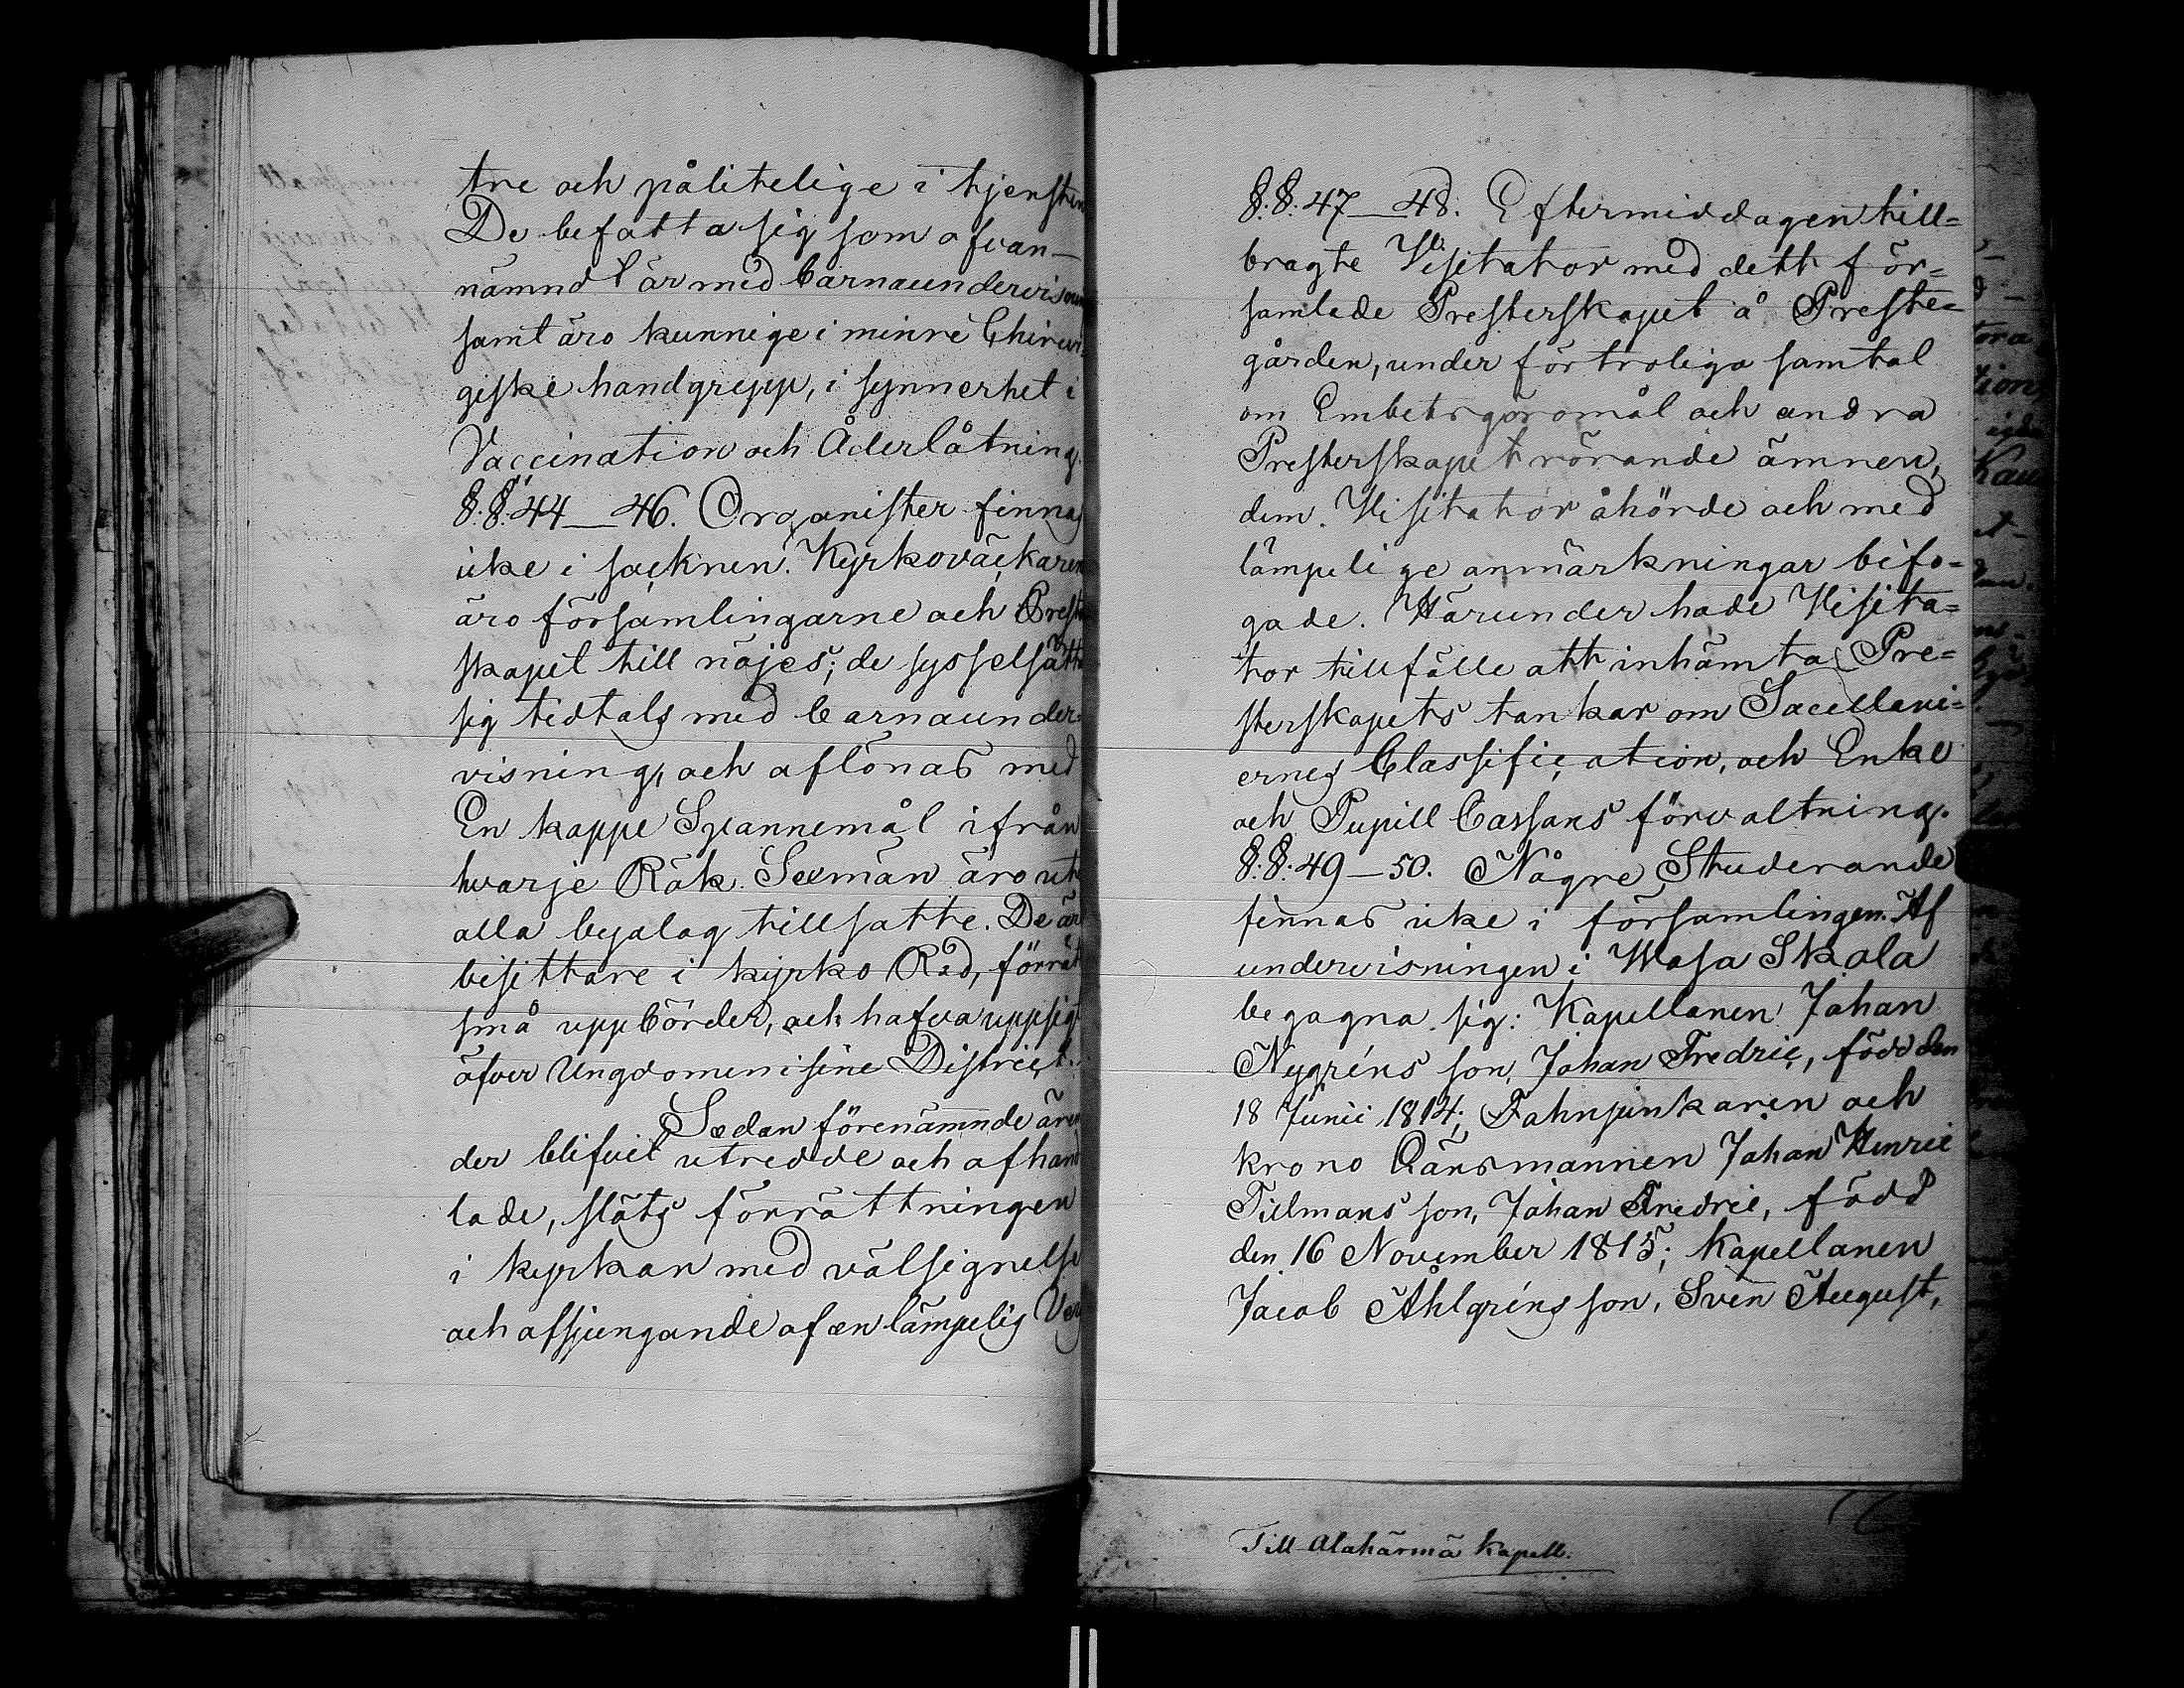 tre och pålitelige i tjensten
De befatta sig som ofvan-
nämnd är med barnaundervisnin
samt äro kunnige i minre Chirur-
giske handgrepp, i synnerhet i
Vaccination och Åderlåtning.
§.§. 44_46. Organister finnas
icke i socknen. Kyrkoväckaren
äro församlingarne och Prest
skapet till nöjes; de sysselsätta
sig tidtals med barnaunder-
visning, och aflönas med
En kappe Spannemål ifrån
hvarje Rök. Sexmän äro uti
alla byalag tillsatte. De är
bisittare i kyrko Råd, förrät
små uppbörder, och hafva uppsigt
öfver Ungdomen i sine District.
Sedan förenämnde ären
der blifvit utredde och afhand
lade, slöts förrättningen
i kyrkan med välsignelse
och afsjungande af en lämpelig Vers
§.§. 47_48. Eftermiddagen till=
bragte Visitator med dett för=
samlade Presterskapet å Preste=
gården, under förtroliga samtal
om Embetsgöromål och andra
Presterskapet rörande ämnen,
dem Visitator åhörde och med
lämpelige anmärkningar bifo=
gade. Härunder hade Visita=
tor tillfälle att inhämta Pre=
sterskapets tankar om Sacellani=
ernes Classification, och Enke
och Pupill Cassans förvaltning.
§.§. 49_50. Någre Studerande
finnas icke i församlingen. Af
undervisningen i Wasa Skola
begagna sig: Kapellanen Johan
Nygréns son, Johan Fredric, född den
18 Junii 1814; Fahnjunkaren och
krono Länsmannen Johan Henric
Tillmans son, Johan Fredric, född
den 16 November 1815; Kapellanen
Jacob Åhlgréns son, Sven August,
Till Alahärmä Kapell.